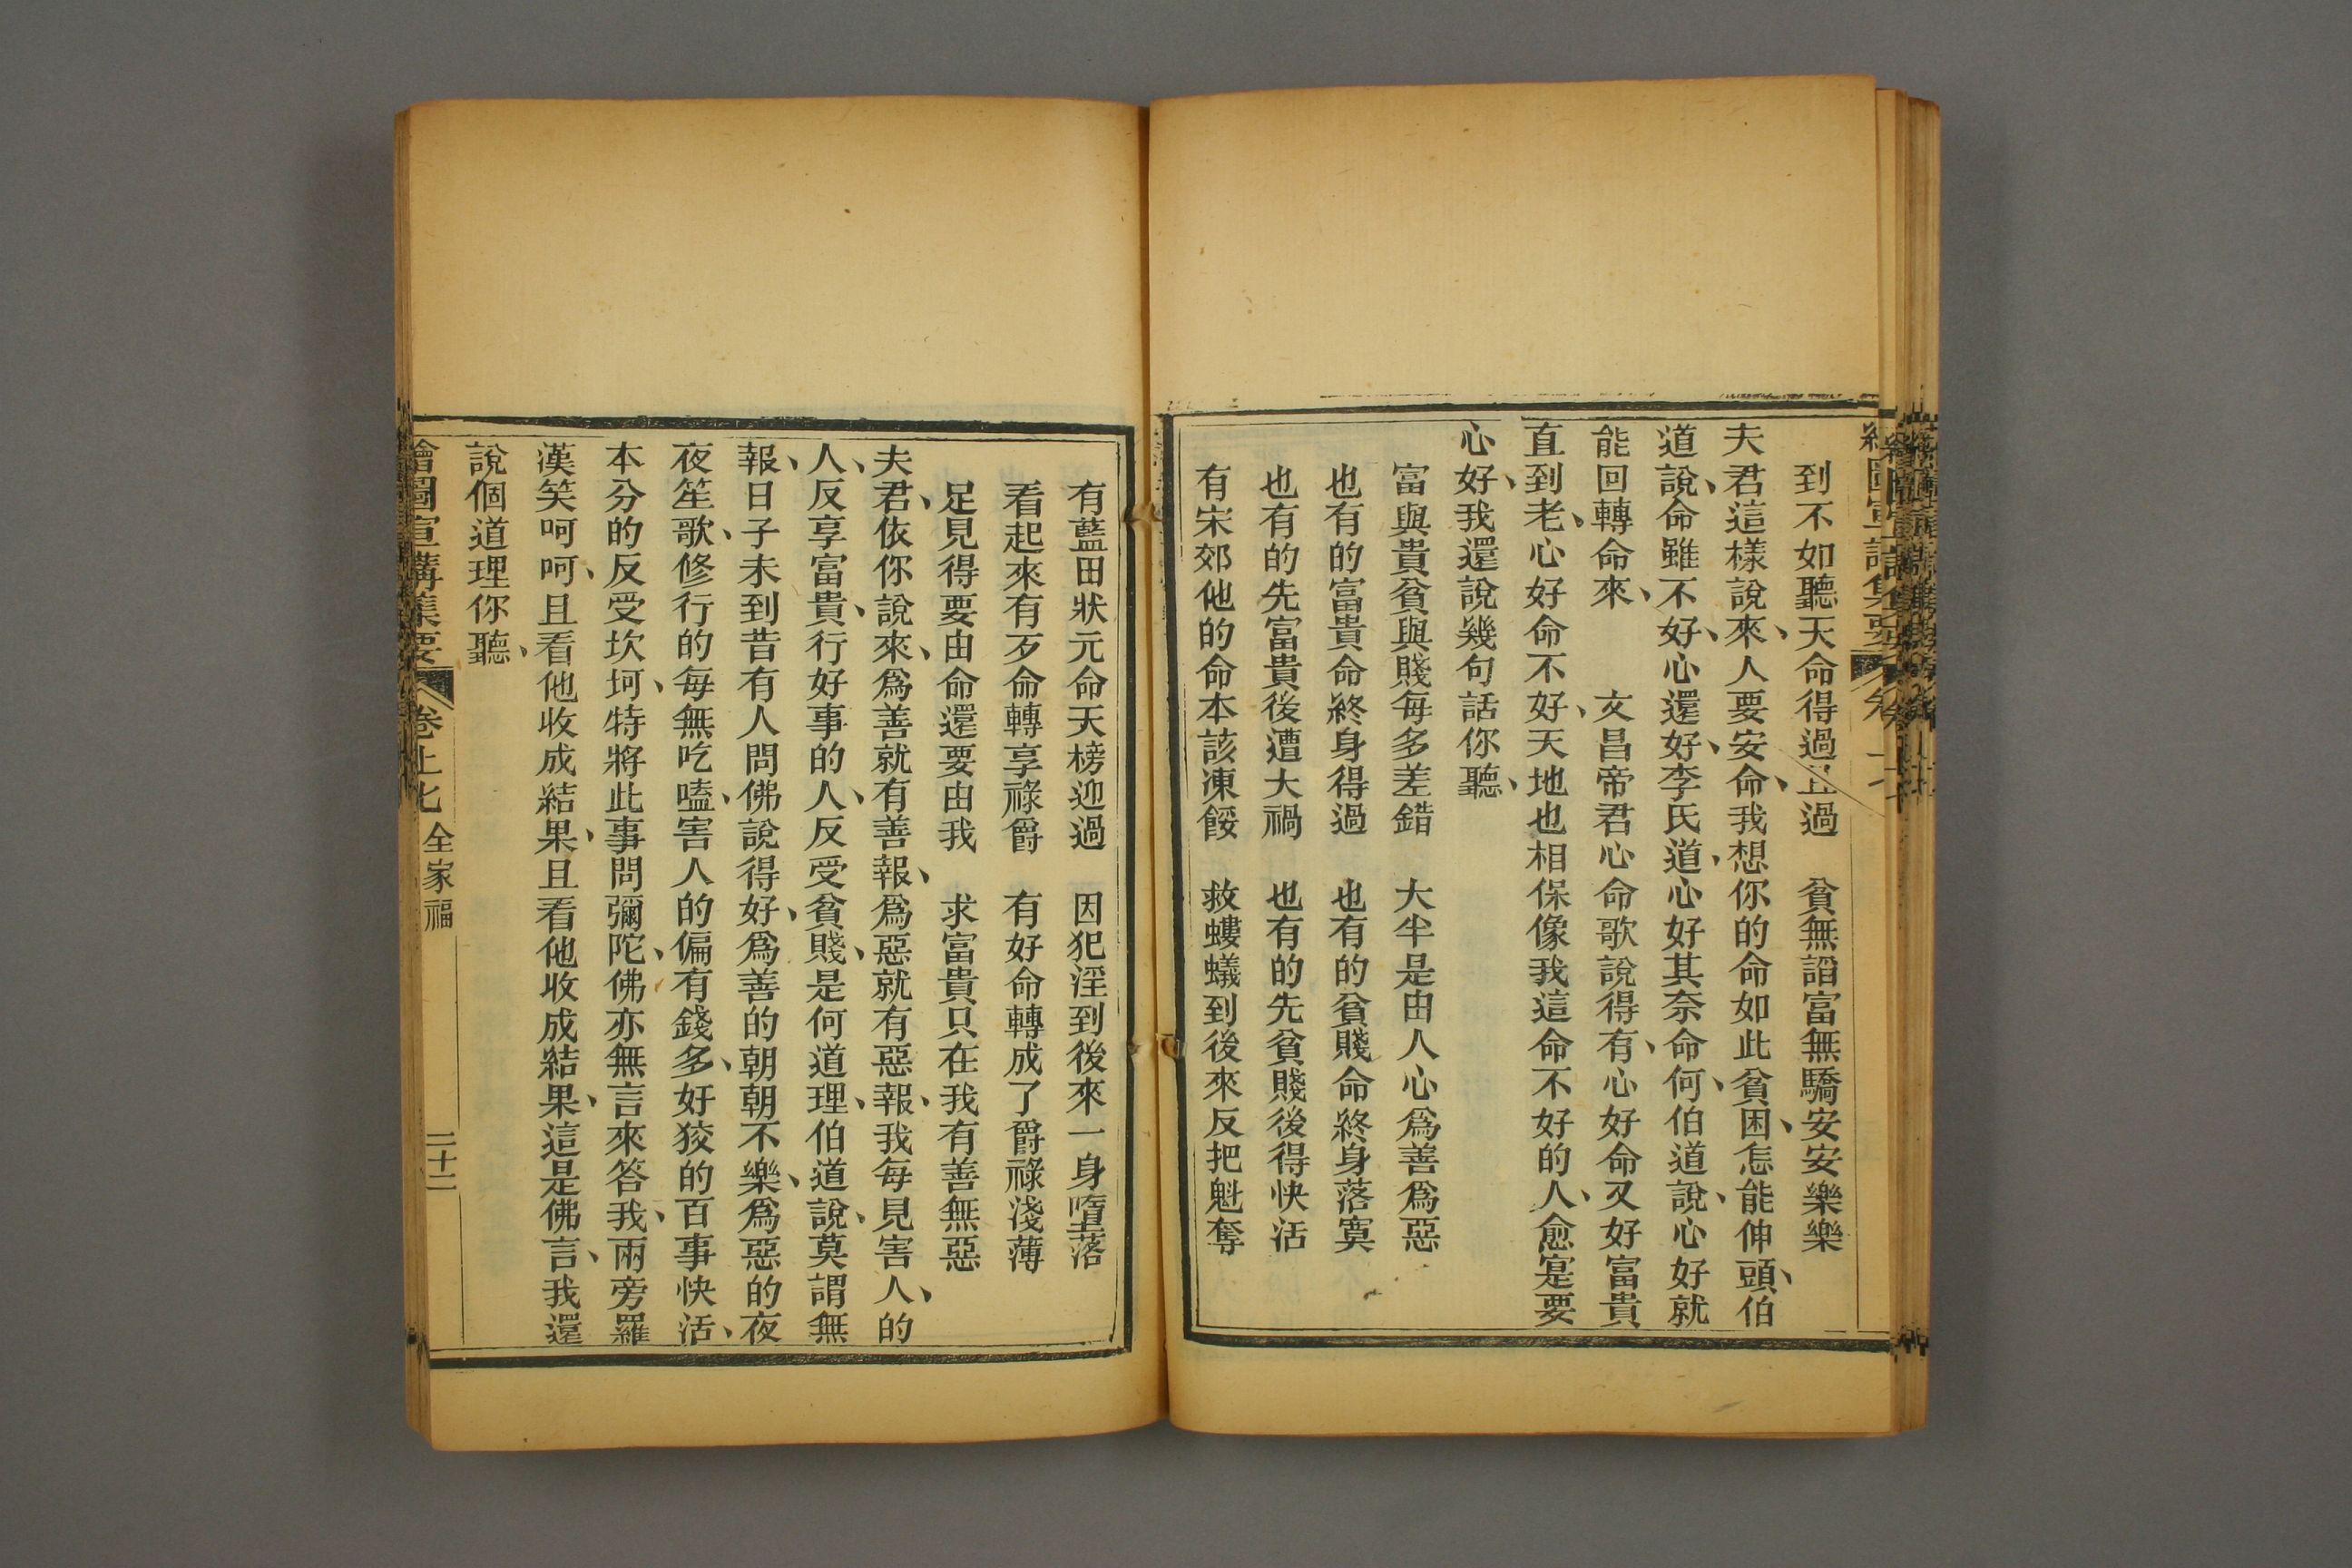 到不如聽天命得過且過　貧無諂富無驕安安樂樂
夫君這樣說來、人要安命、我想你的命如此貧困、怎能伸頭、伯
道說、命雖不好、心還好、李氏道、心好其奈命何、伯道說、心好就
能回轉命來、　文昌帝君心命歌說得有、心好命又好富貴
直到老、心好命不好、天地也相保像我這命不好的人、愈寔要
心好、我還說幾句話你聽、
富與貴貧與賤每多差錯　大半是由人心爲善爲惡
也有的富貴命終身得過　也有的貧賤命終身落寞
也有的先富貴後遭大禍　也有的先貧賤後得快活
有宋郊他的命本該凍餒　救螻蟻到後來反把魁奪
有藍田狀元命天榜迎過　因犯淫到後來一身墮落
看起來有歹命轉享祿爵　有好命轉成了爵祿淺薄
足見得要由命還要由我　求富貴只在我有善無惡
夫君、依你說來、爲善就有善報、爲惡就有惡報、我每見害人、的
人、反享富貴、行好事的人、反受貧賤、是何道理、伯道說、莫謂無
報、日子未到昔有人問佛說得好、爲善的朝朝不樂、爲惡的夜
夜笙歌、修行的每無吃嗑、害人的偏有錢多、好狡的百事快活、
本分的反受坎坷、特將此事問彌陀、佛亦無言來答我、兩旁羅
漢笑呵呵、且看他收成結果、且看他收成結果、這是佛言、我還
說個道理你聽、
繪圖宣講集要　卷上七　全家福　二十二